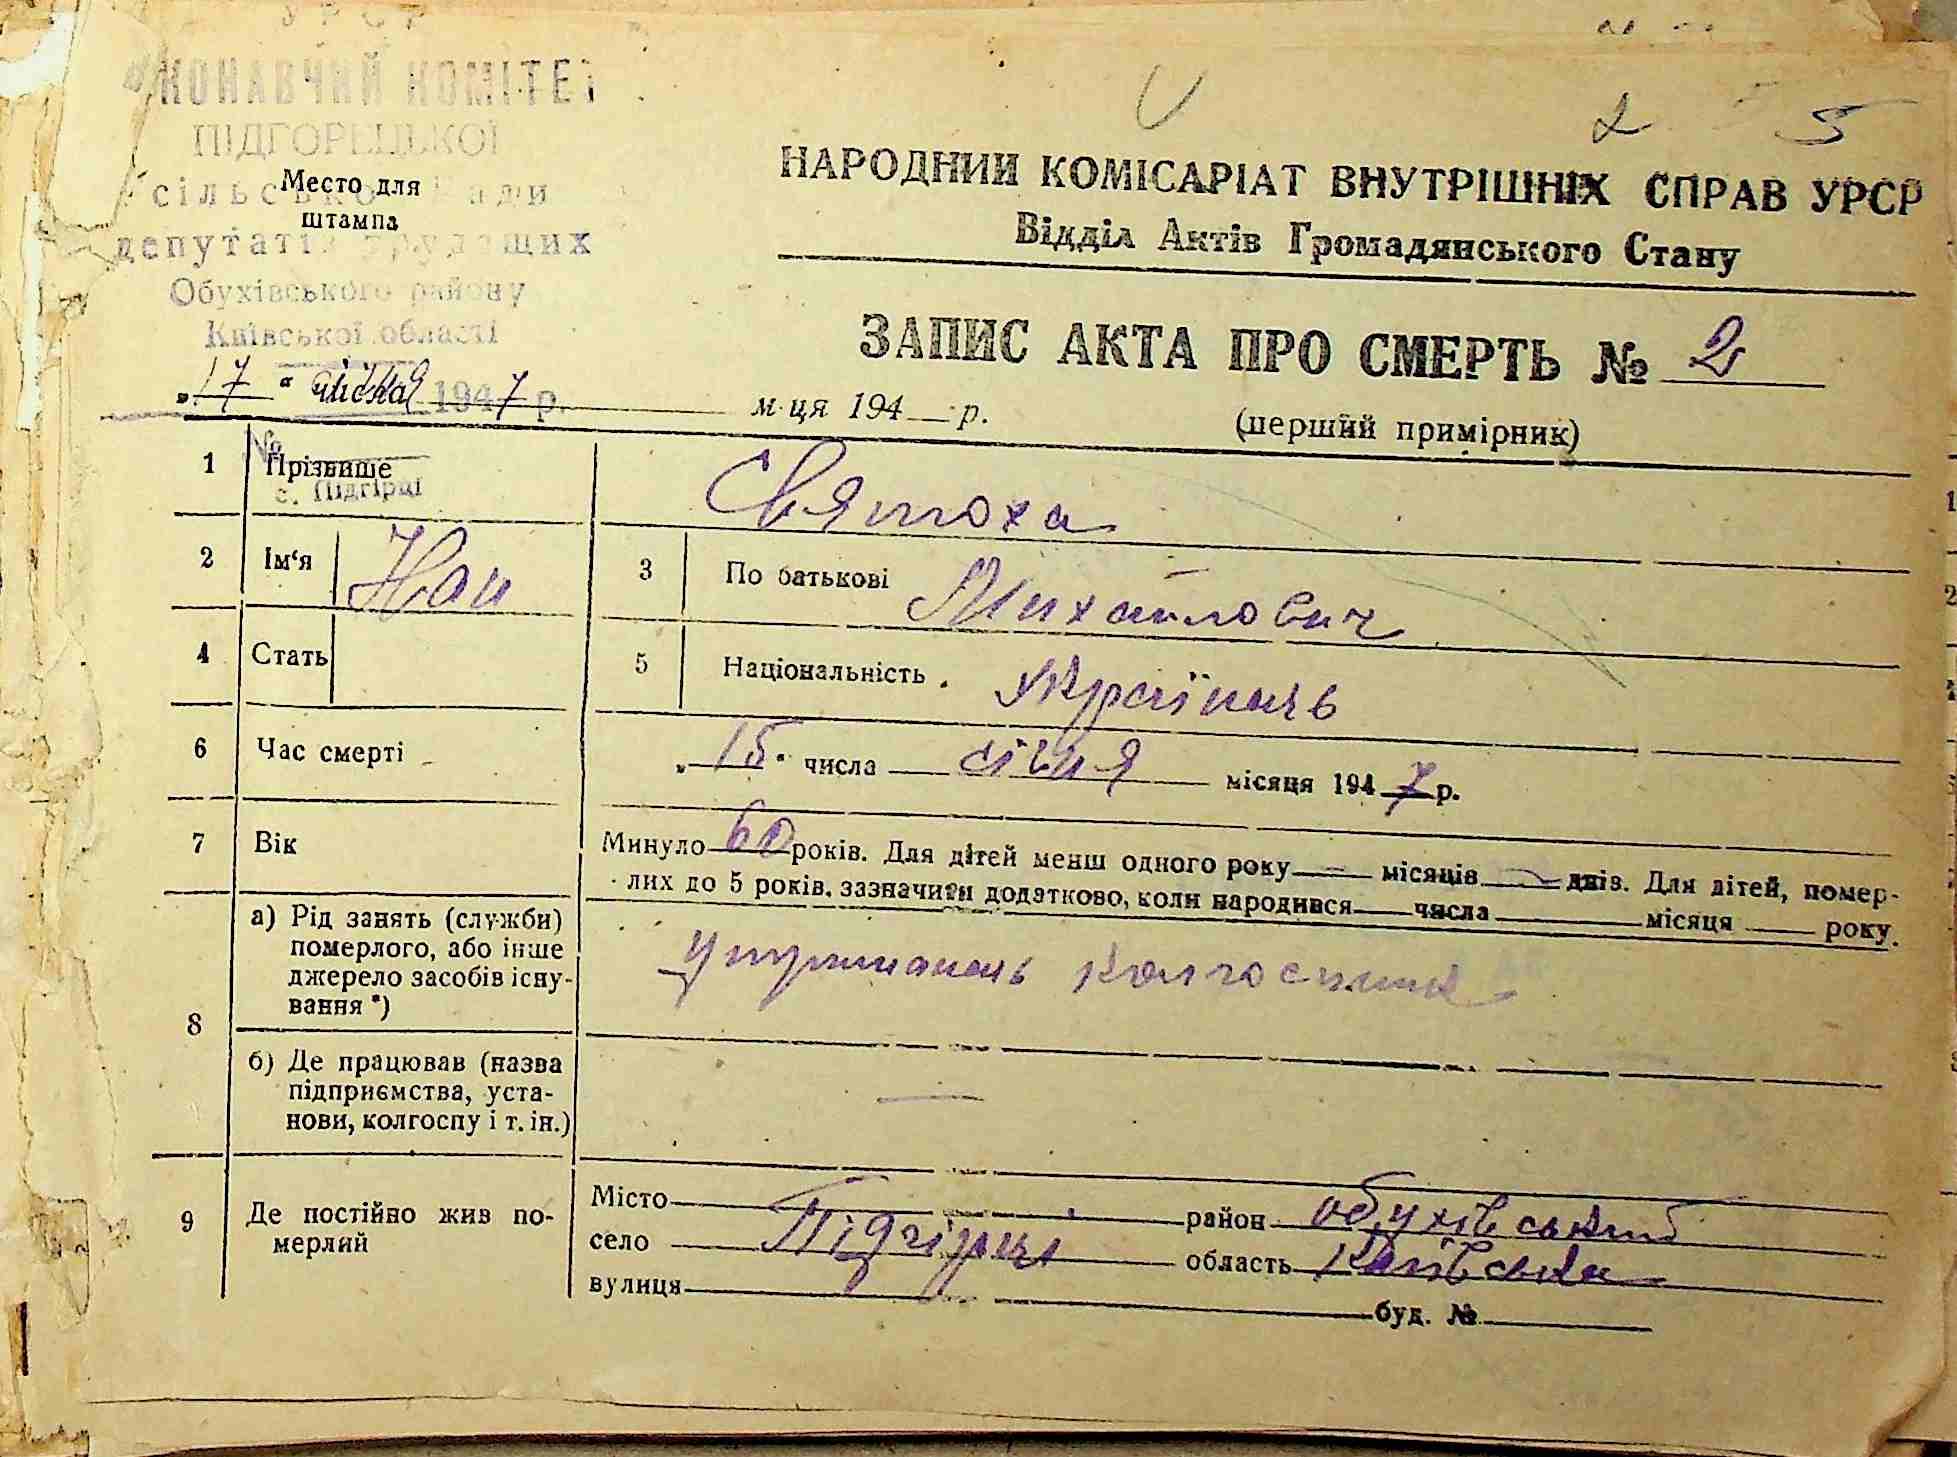 УРСР
ВИКОНАВЧИЙ КОМІТЕТ
ПІДГОРЕЦЬКОЇ
сільської Ради
депутатів трудящих
Обухівського району
Київської області
Место для
штампа
2 5
НАРОДНИЙ КОМІСАРІАТ ВНУТРІШНІХ СПРАВ УРСР
Відділ Актів Громадянського Стану
ЗАПИС АКТА ПРО СМЕРТЬ № 2
„17“ січня 1947 р. м-ця 194 р.
(перший примірник)
№
с. Підгірці
1 Прізвище Святоха
2 Ім'я 3 По батькові Михайлович
4 Стать 5 Національність Українець
6 Час смерті „15“ числа січня місяця 1947 р.
7 Вік Минуло 60 років. Для дітей менш одного року — місяців — днів. Для дітей, помер-
лих до 5 років, зазначити додатково, коли народився числа місяця року.
8 а) Рід занять (служби)
померлого, або інше
джерело засобів існу-
вання *)
утриманець колгоспника
б) Де працював (назва
підприємства, уста-
нови, колгоспу і т. ін.)
—
9 Де постійно жив по-
мерлий
Місто район Обухівський
село Підгірці область Київська
вулиця буд. №